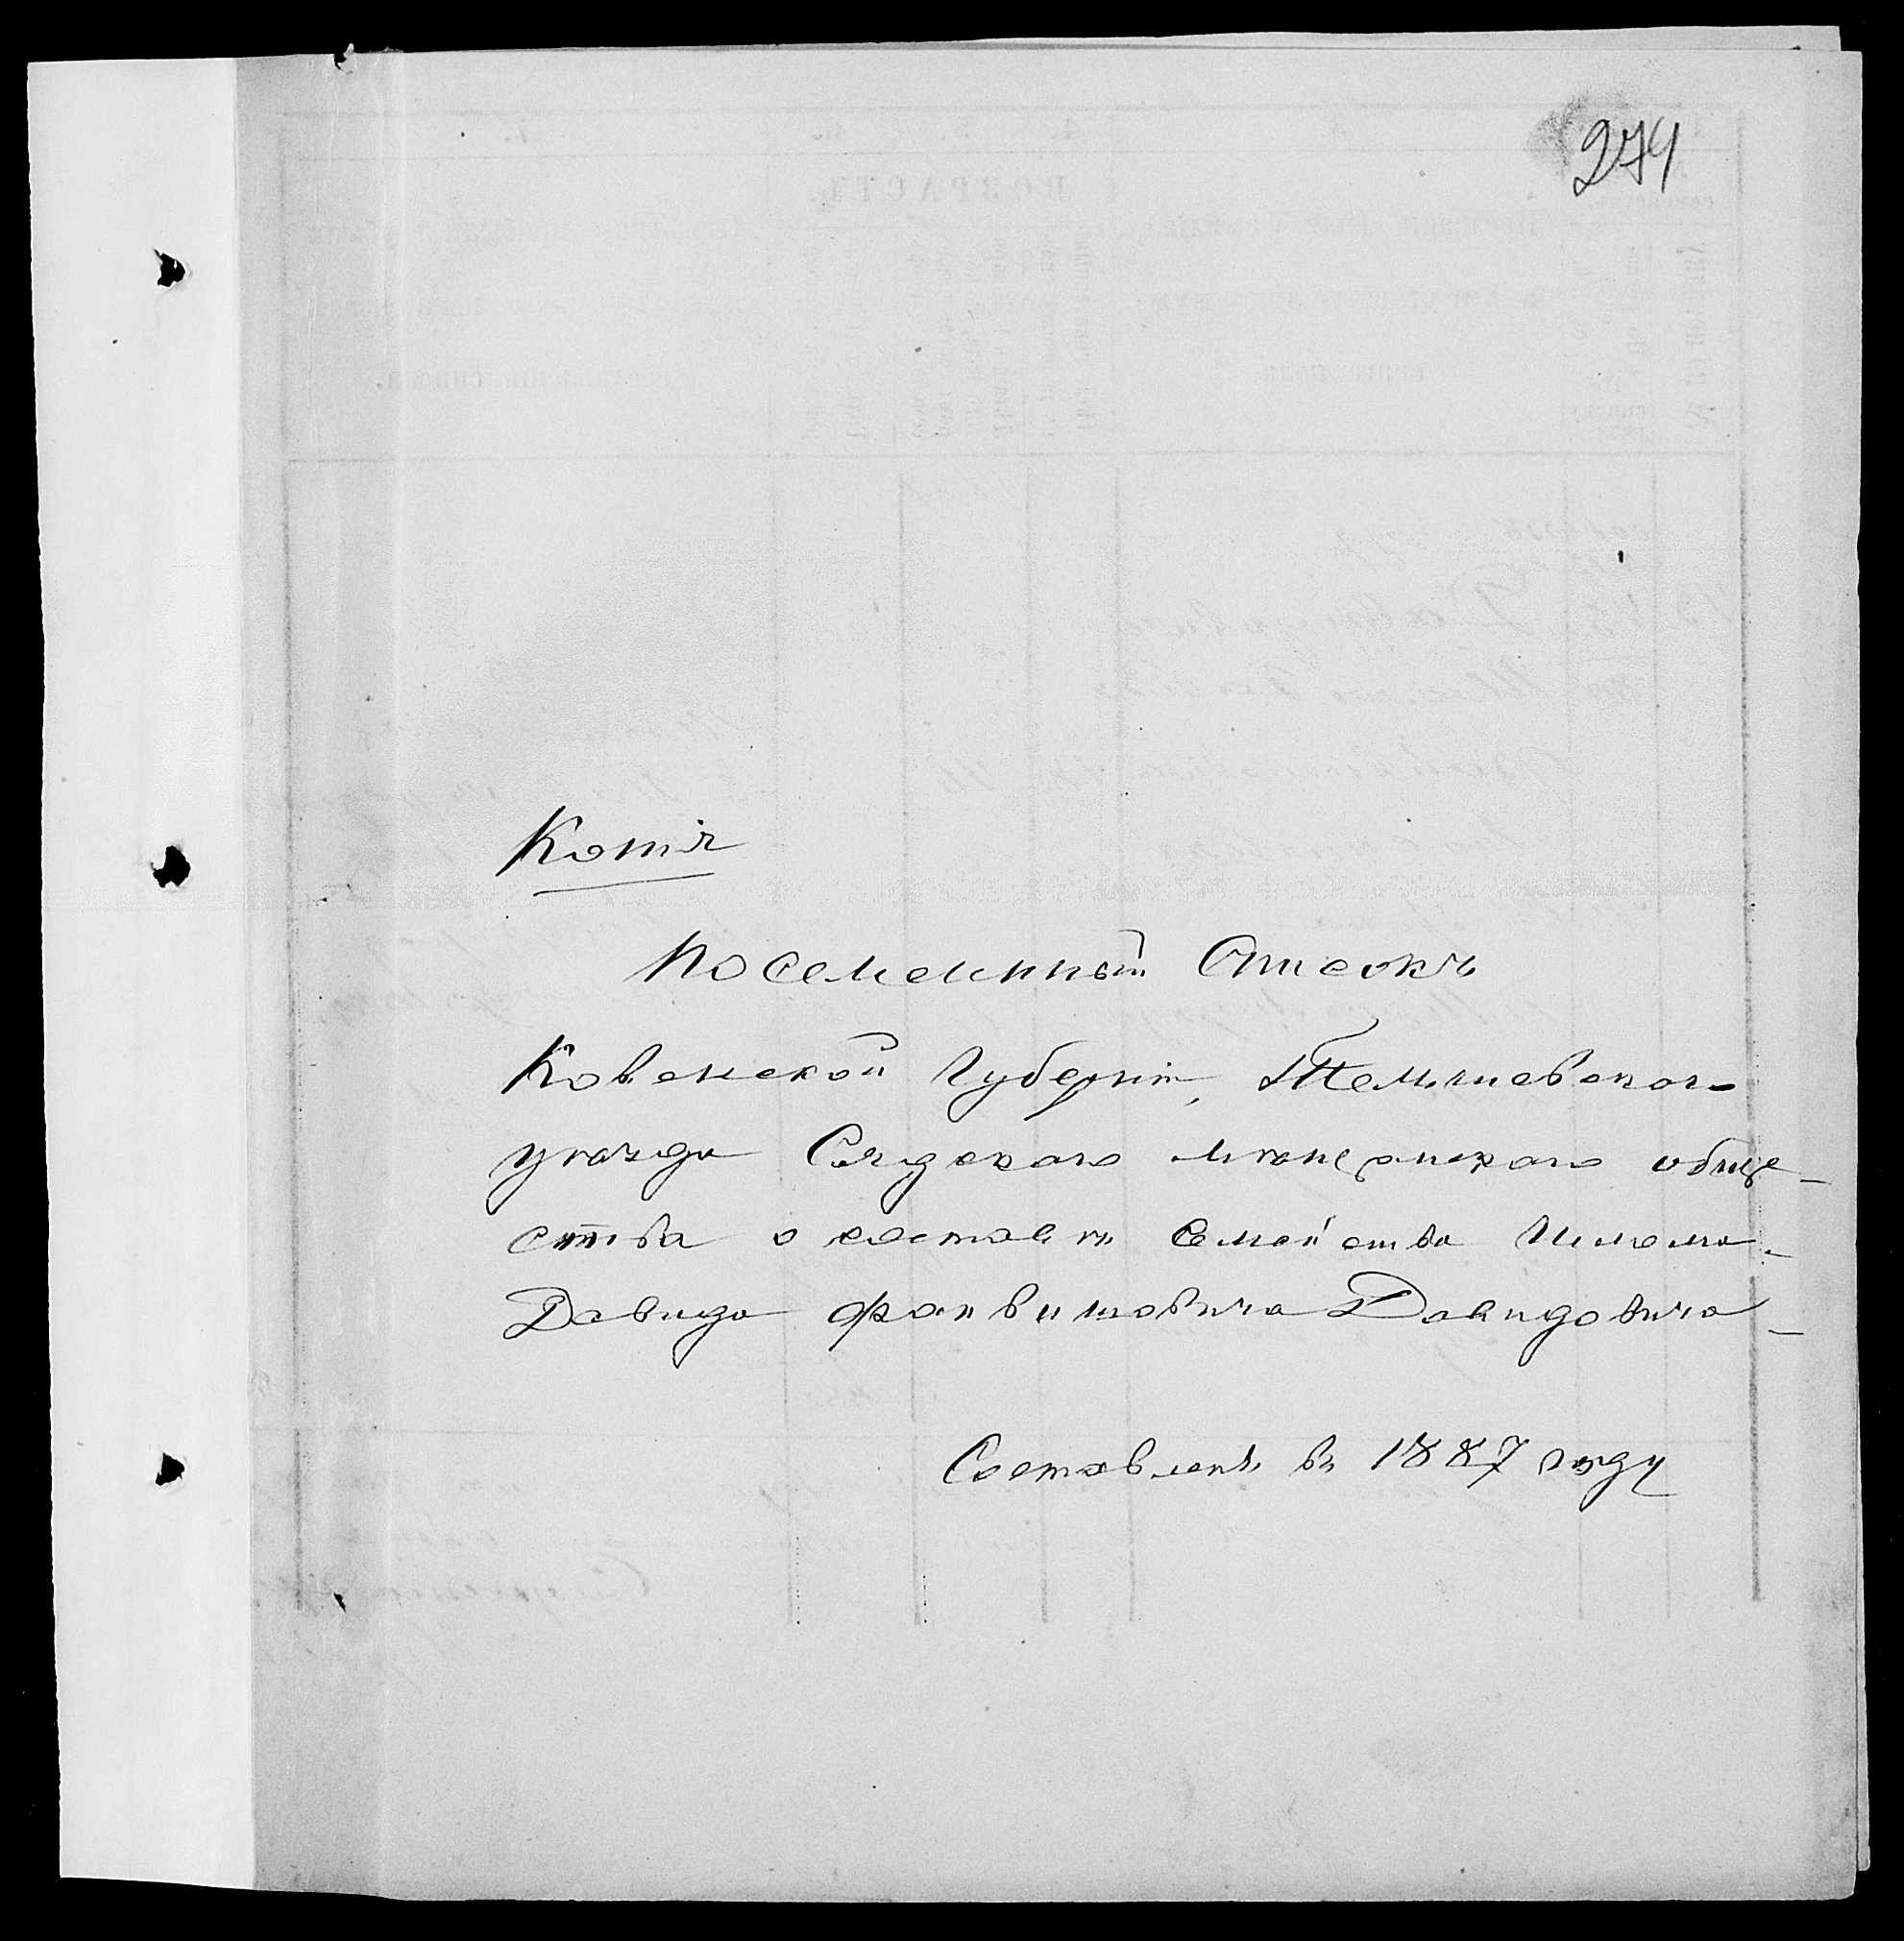 274
Копія
Посемейный Списокъ
Ковенской Губерніи, Тельшевскаго
уѣзда Сядскаго мѣщанскаго обще-
ства о составѣ семейства
Давида Файвишовича Давидовича
Составленъ въ 1887 году